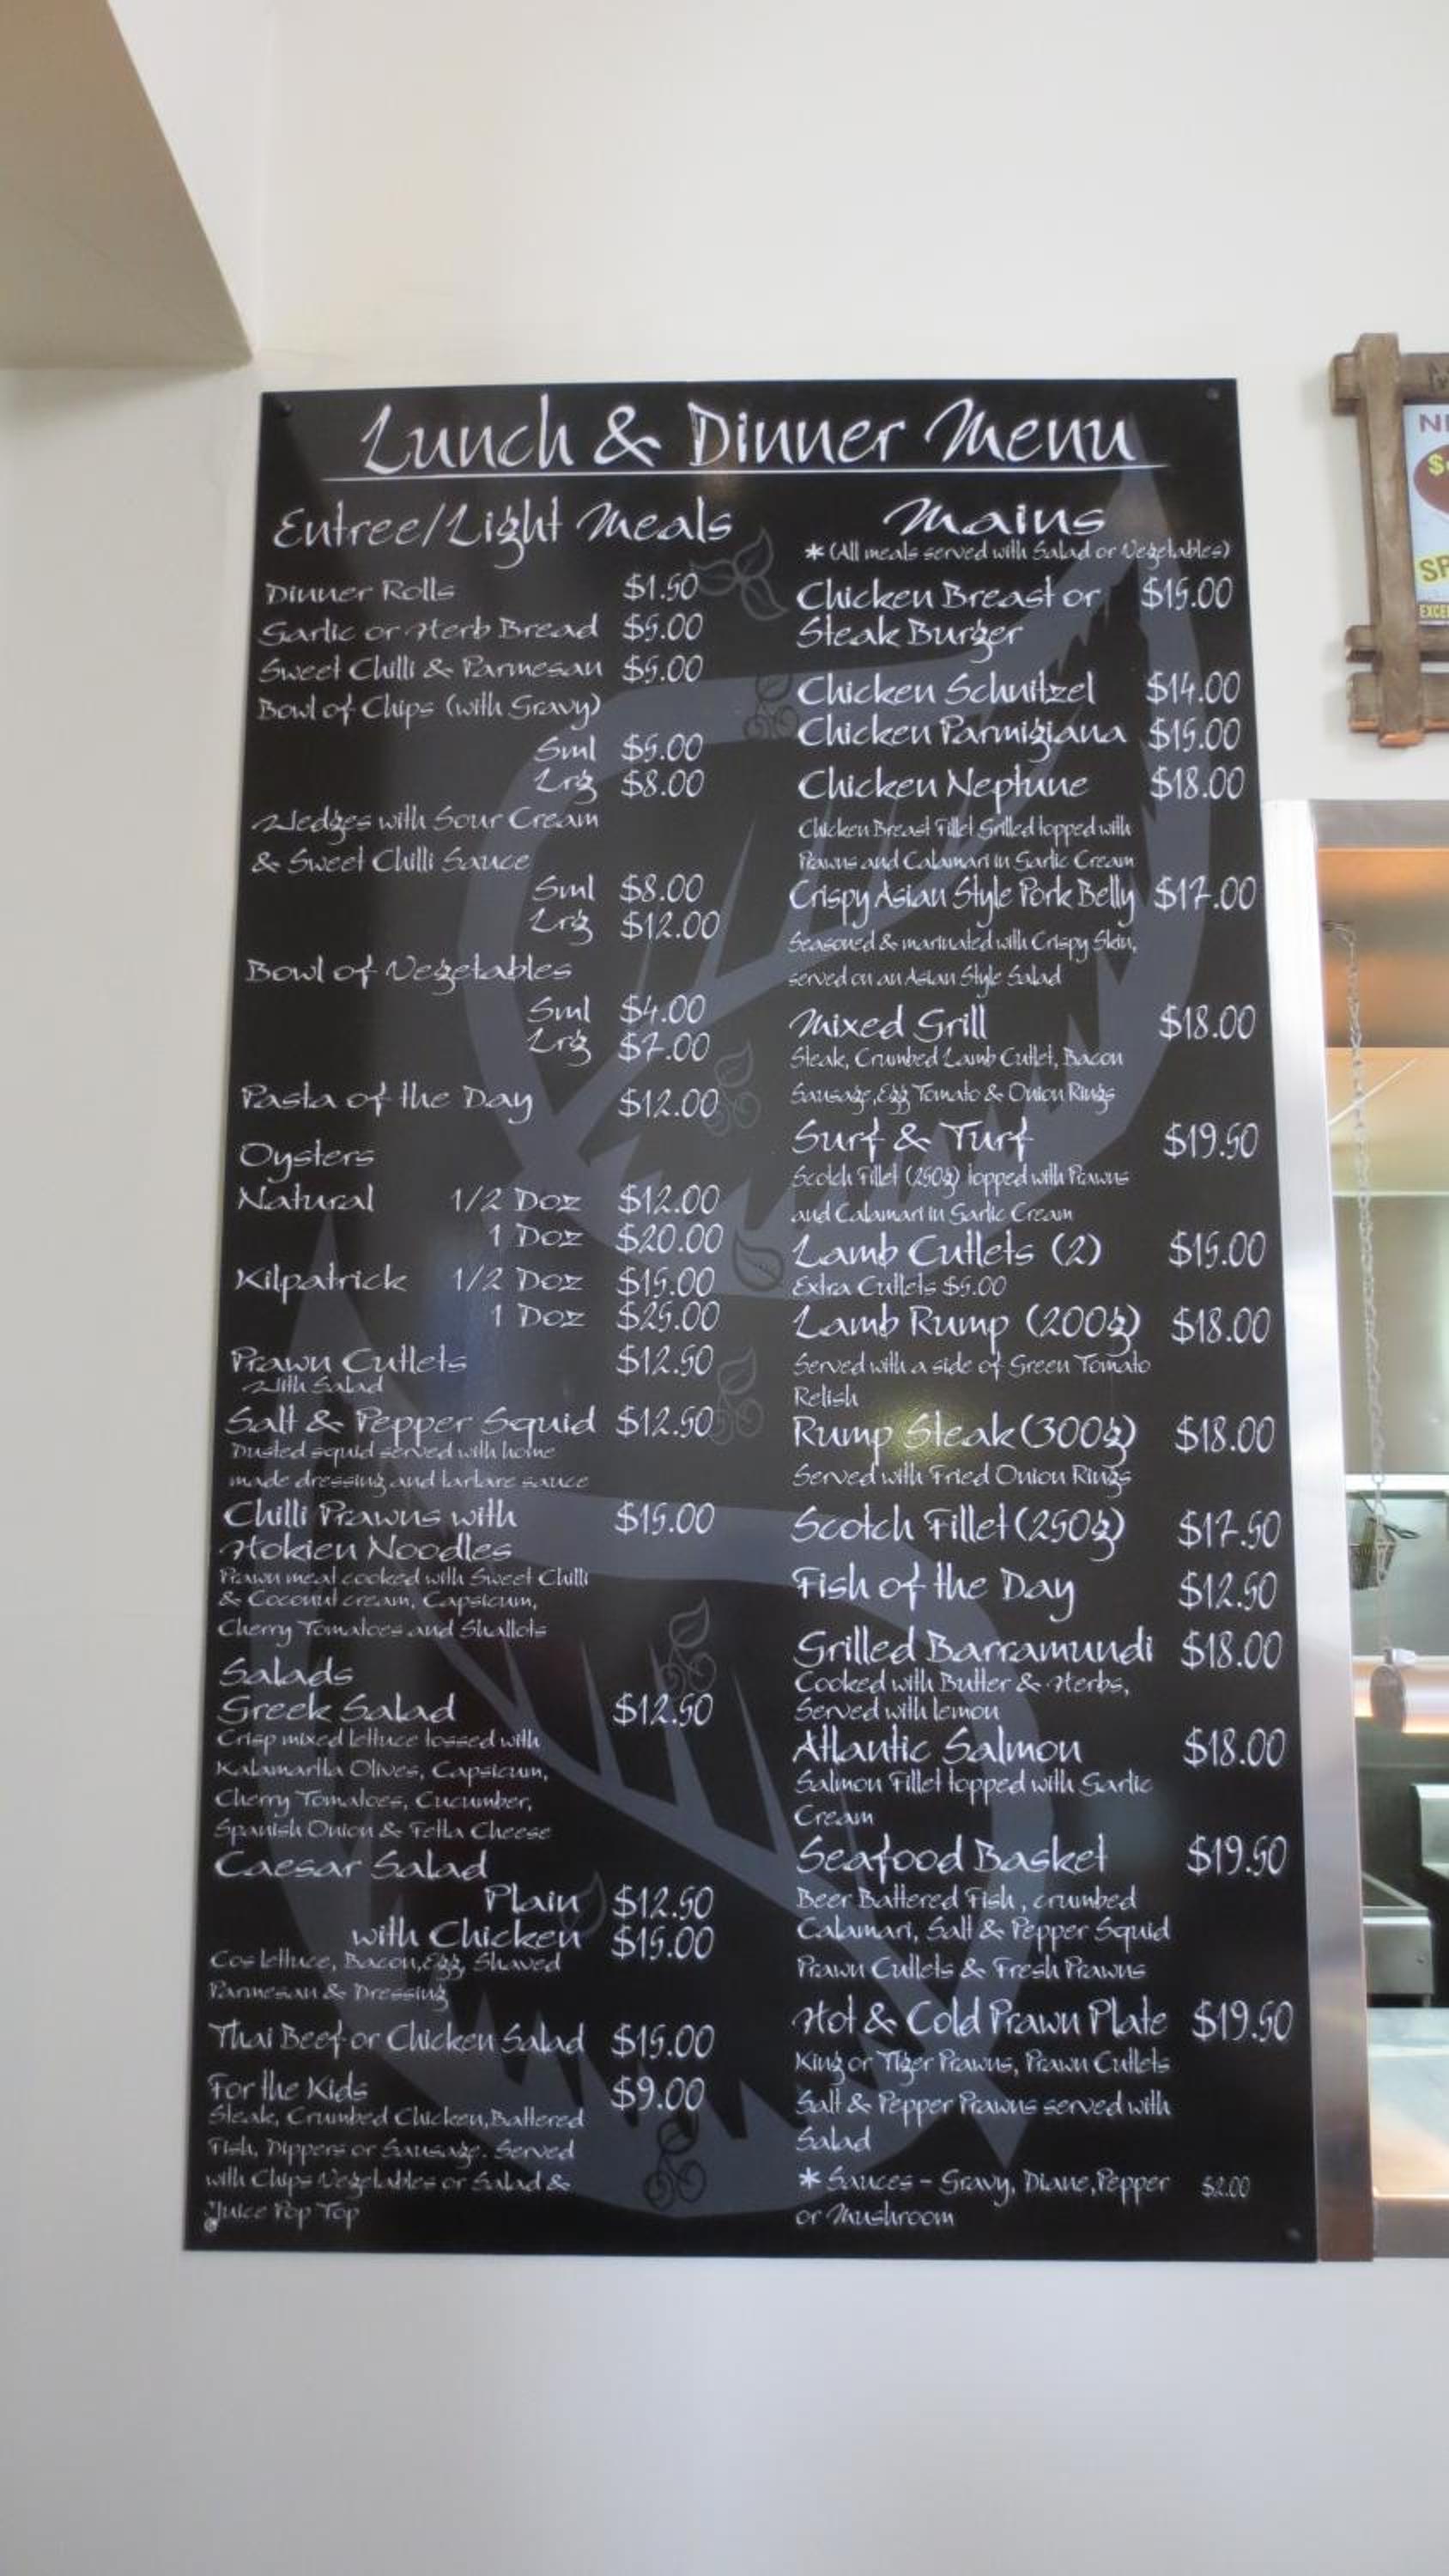 Lunch & Dinner Menu
Entree/Light Meals
Dinner Rolls $1.50
Garlic or Herb Bread $5.00
Sweet Chilli & Parmesan $5.00
Bowl of Chips (with Gravy)
Sml $5.00
Lrg $8.00
Wedges with Sour Cream
& Sweet Chilli Sauce
Sml $8.00
Lrg $12.00
Bowl of Vegetables
Sml $4.00
Lrg $7.00
Pasta of the Day $12.00
Oysters
Natural 1/2 Doz $12.00
1 Doz $20.00
Kilpatrick 1/2 Doz $15.00
1 Doz $25.00
Prawn Cutlets $12.50
With Salad
Salt & Pepper Squid $12.50
Dusted squid served with home
made dressing and tartare sauce
Chilli Prawns with $15.00
Hokien Noodles
Prawn meat cooked with Sweet Chilli
& Coconut cream, Capsicum,
Cherry Tomatoes and Shallots
Salads
Greek Salad $12.50
Crisp mixed lettuce tossed with
Kalamartla Olives, Capsicum,
Cherry Tomatoes, Cucumber,
Spanish Onion & Fetta Cheese
Caesar Salad
Plain $12.50
with Chicken $15.00
Cos lettuce, Bacon, Egg, Shaved
Parmesan & Dressing
Thai Beef or Chicken Salad $15.00
For the Kids $9.00
Steak, Crumbed Chicken, Battered
Fish, Dippers or Sausage. Served
with Chips Vegetables or Salad &
Juice Pop Top
Mains
* (All meals served with Salad or Vegetables)
Chicken Breast or $15.00
Steak Burger
Chicken Schnitzel $14.00
Chicken Parmigiana $15.00
Chicken Neptune $18.00
Chicken Breast Fillet Grilled topped with
Prawns and Calamari in Garlic Cream
Crispy Asian Style Pork Belly $17.00
Seasoned & marinated with Crispy Skin,
served on an Asian Style Salad
Mixed Grill $18.00
Steak, Crumbed Lamb Cutlet, Bacon
Sausage, Egg Tomato & Onion Rings
Surf & Turf $19.50
Scotch Fillet (250g) topped with Prawns
and Calamari in Garlic Cream
Lamb Cutlets (2) $15.00
Extra Cutlets $5.00
Lamb Rump (200g) $18.00
Served with a side of Green Tomato
Relish
Rump Steak (300g) $18.00
Served with Fried Onion Rings
Scotch Fillet (250g) $17.50
Fish of the Day $12.50
Grilled Barramundi $18.00
Cooked with Butter & Herbs,
Served with lemon
Atlantic Salmon $18.00
Salmon Fillet topped with Garlic
Cream
Seafood Basket $19.50
Beer Battered Fish, crumbed
Calamari, Salt & Pepper Squid
Prawn Cutlets & Fresh Prawns
Hot & Cold Prawn Plate $19.50
King or Tiger Prawns, Prawn Cutlets
Salt & Pepper Prawns served with
Salad
* Sauces - Gravy, Diane, Pepper $2.00
or Mushroom